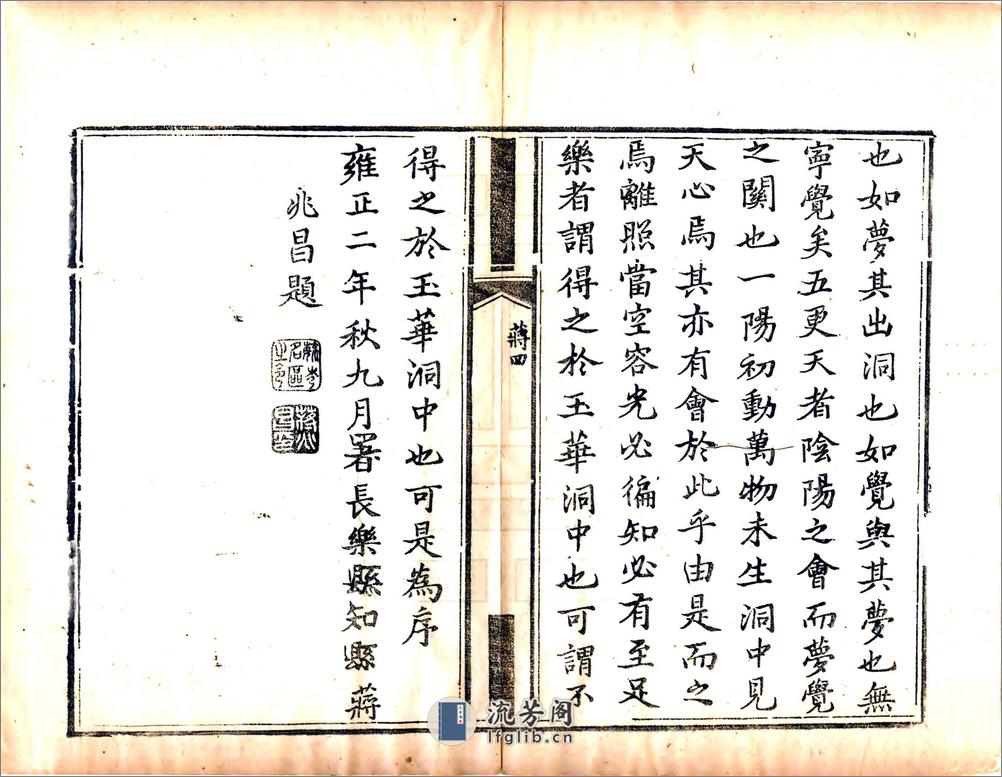 也如夢其出洞也如覺與其夢也無
寧覺矣五更天者陰陽之會而夢覺
之關也一陽初動萬物未生洞中見
天心焉其亦有會於此乎由是而之
焉離照當空容光必徧知必有至足
樂者謂得之於玉華洞中也可謂不
蔣四
得之於玉華洞中也可是為序
雍正二年秋九月署長樂縣知縣蔣
兆昌題
流芳阁
lfglib.cn